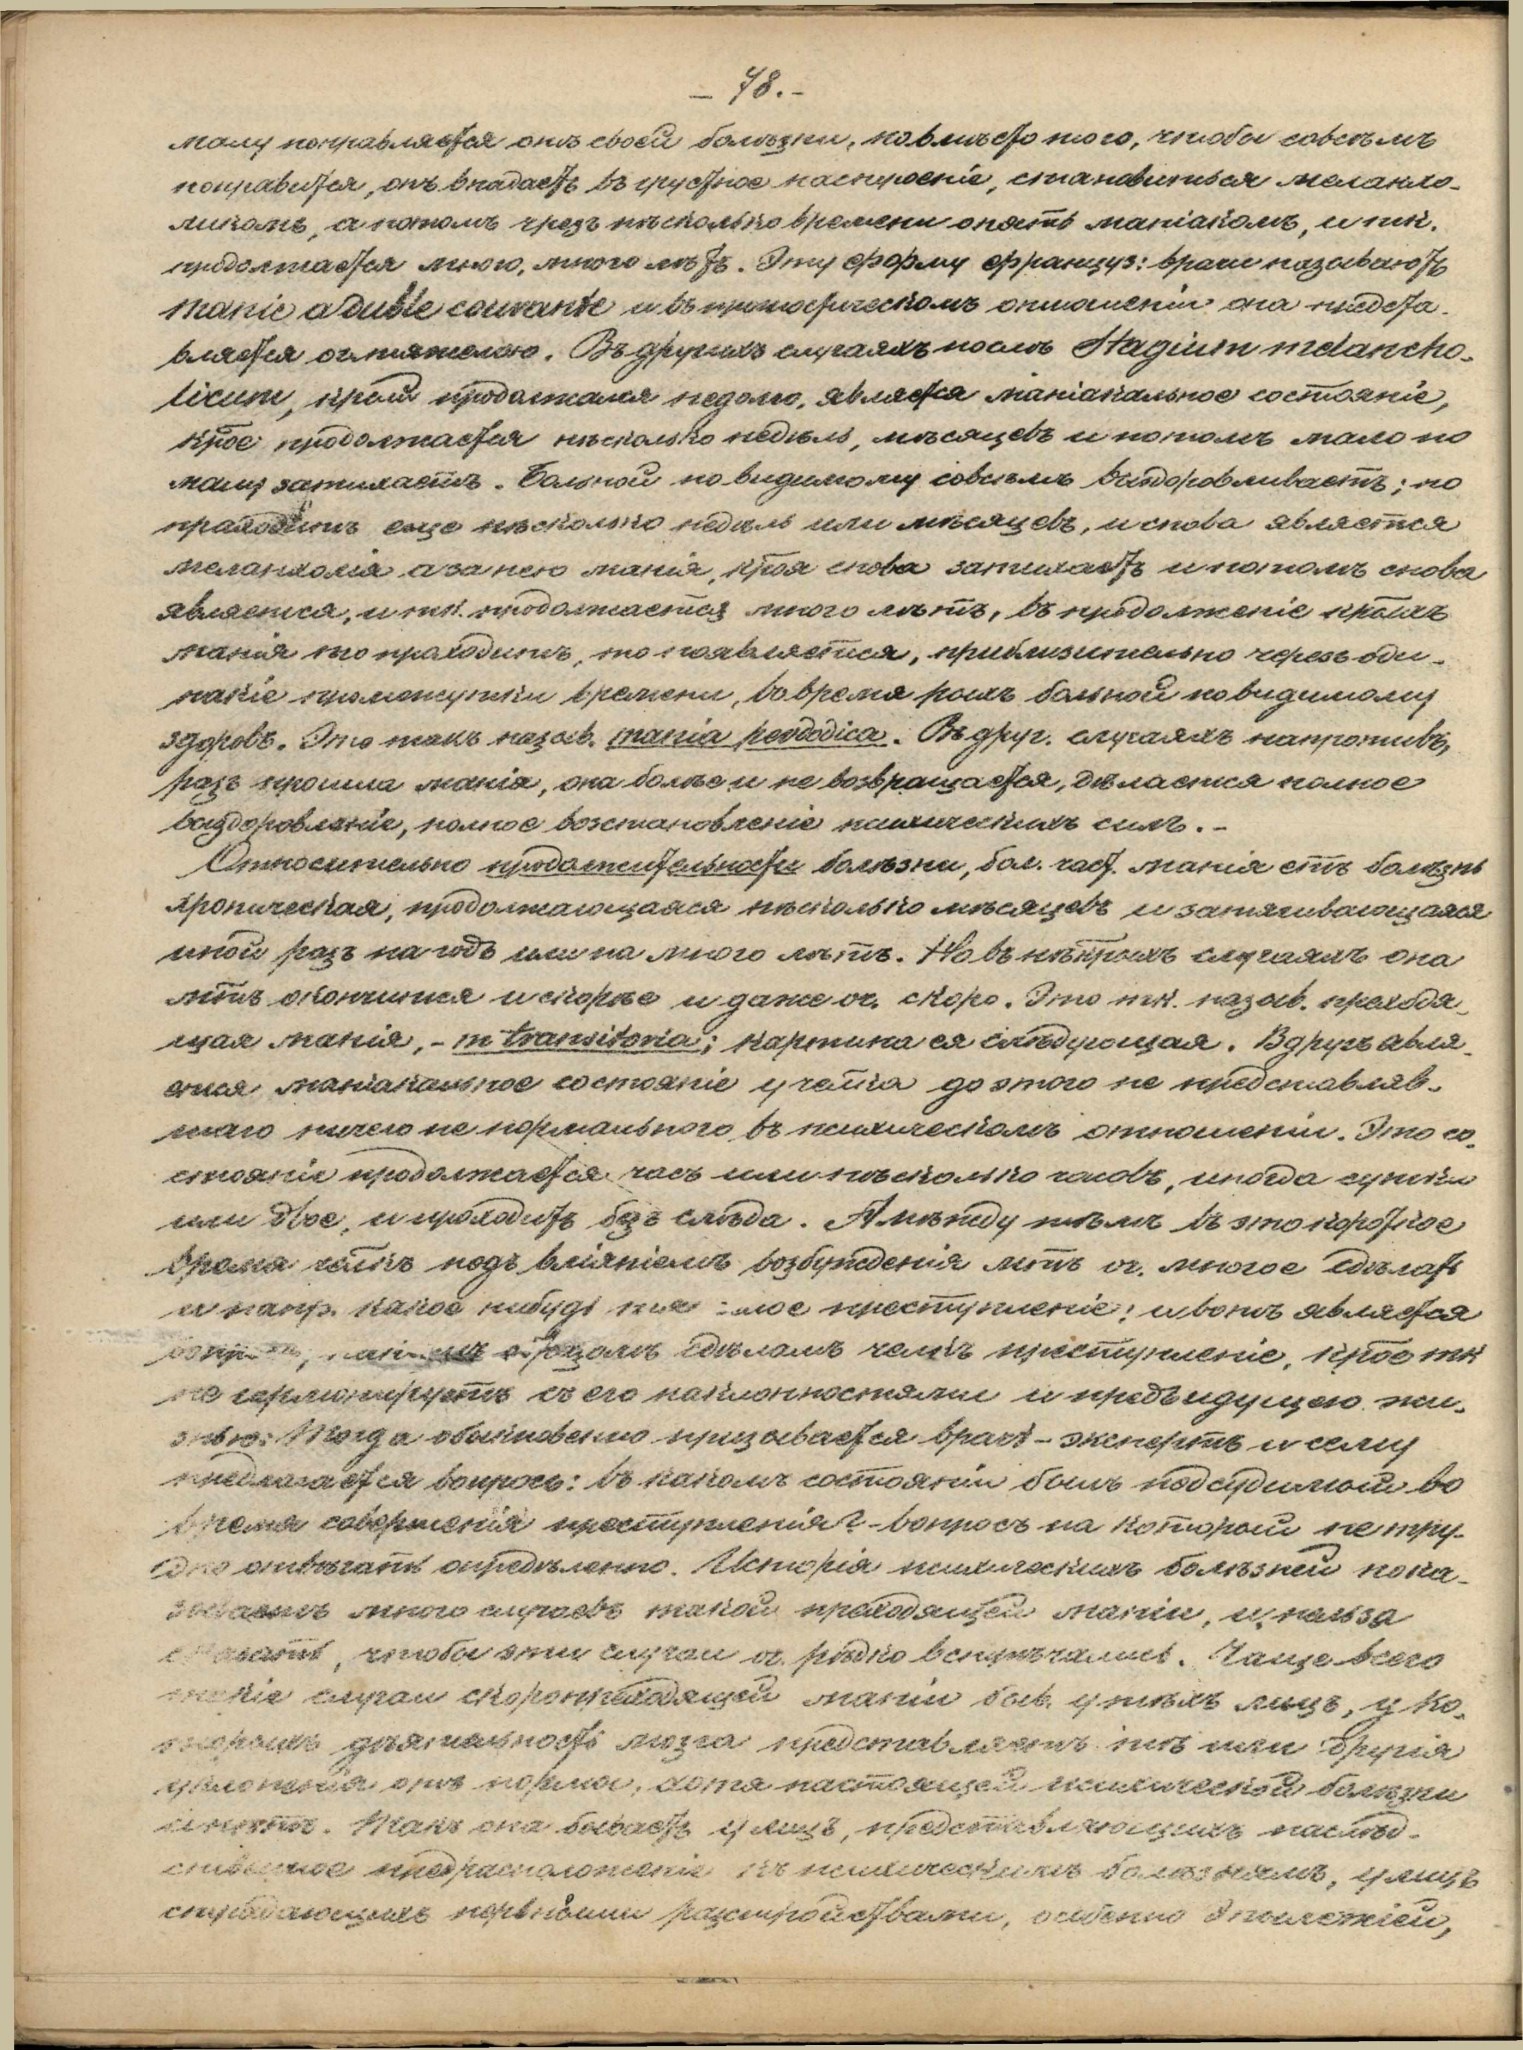 — 78. —
малу поправляется отъ своей болѣзни, но вмѣсто того, чтобы совсѣмъ
поправиться, онъ впадаетъ въ грустное настроеніе, становиться меланхо-
ликомъ, а потомъ чрезъ нѣсколько времени опять маніакомъ, и тк.
продолжается много, много лѣтъ. Эту форму француз: врачи называютъ
manie a duble courante и въ прогностическомъ отношеніи она предста-
вляется оч. тяжелою. Въ другихъ случаяхъ послѣ Stagium melancho-
licum, крый продолжался недолго, является маніакальное состояніе,
крое продолжается нѣсколько недѣль, мѣсяцевъ и потомъ мало по
малу затихаетъ. Больной повидимому совсѣмъ выздоровливаетъ; но
проходитъ еще нѣсколько недѣль или мѣсяцевъ, и снова является
меланхолія а за нею манія, кроя снова затихаетъ и потомъ снова
является, и тк. продолжается много лѣтъ, въ продолженіе крыхъ
манія то проходитъ, то появляется, приблизительно черезъ оди-
накіе промежутки времени, во время рыхъ больной повидимому
здоровъ. Это такъ назыв. mania peridodica. Въ друг. случаяхъ напротивъ,
разъ прошла манія, она болѣе и не возвращается, дѣлается полное
выздоровленіе, полное возстановленіе психическихъ силъ. —
Относительно продолжительности болѣзни, бол. част. манія есть болѣзнь
хроническая, продолжающаяся нѣсколько мѣсяцевъ и затягивающаяся
иной разъ на годъ или на много лѣтъ. Но въ нѣкрыхъ случаяхъ она
мтъ окончиться и скорѣе и даже оч. скоро. Это тк. назыв. преходя-
щая манія, — m transitoria; картина ея слѣдующая. Вдругъ явля-
ется маніакальное состояніе у челка до этого не представляв-
шаго ничего не нормальнаго въ психическомъ отношеніи. Это со-
стояніе продолжается часъ или нѣсколько часовъ, иногда сутки
или двое, и проходитъ безъ слѣда. А между тѣмъ въ это короткое
время челкъ подъ вліяніемъ возбужденія мтъ оч. многое сдѣлать
и напр. какое нибудь тяж лое преступленіе; и вотъ является
образомъ сдѣлалъ челкъ преступленіе, крое тк
не гармонируетъ съ его наклонностями и предъидущею жи-
знью: Тогда обыкновенно призывается врачъ-экспертъ и сему
предлагается вопросъ: въ какомъ состояніи былъ подсудимый во
время совершенія преступленія? — вопросъ на который не тру-
дно отвѣчать опредѣленно. Исторія психическихъ болѣзней пока-
зываетъ много случаевъ такой преходящей маніи, и нельзя
сказать, чтобы эти случаи оч. рѣдко встрѣчались. Чаще всего
такіе случаи скоропреходящей маніи быв. у тѣхъ лицъ, у ко-
торыхъ дѣятельность мозга представляетъ тѣ или другія
уклоненія отъ нормы, хотя настоящей психической болѣзни
и нѣтъ. Такъ она бываетъ у лицъ, представляющихъ наслѣд-
ственное предрасположеніе къ психическимъ болѣзнямъ, у лицъ
страдающихъ нервными разстройствами, особенно эпилепсіей,